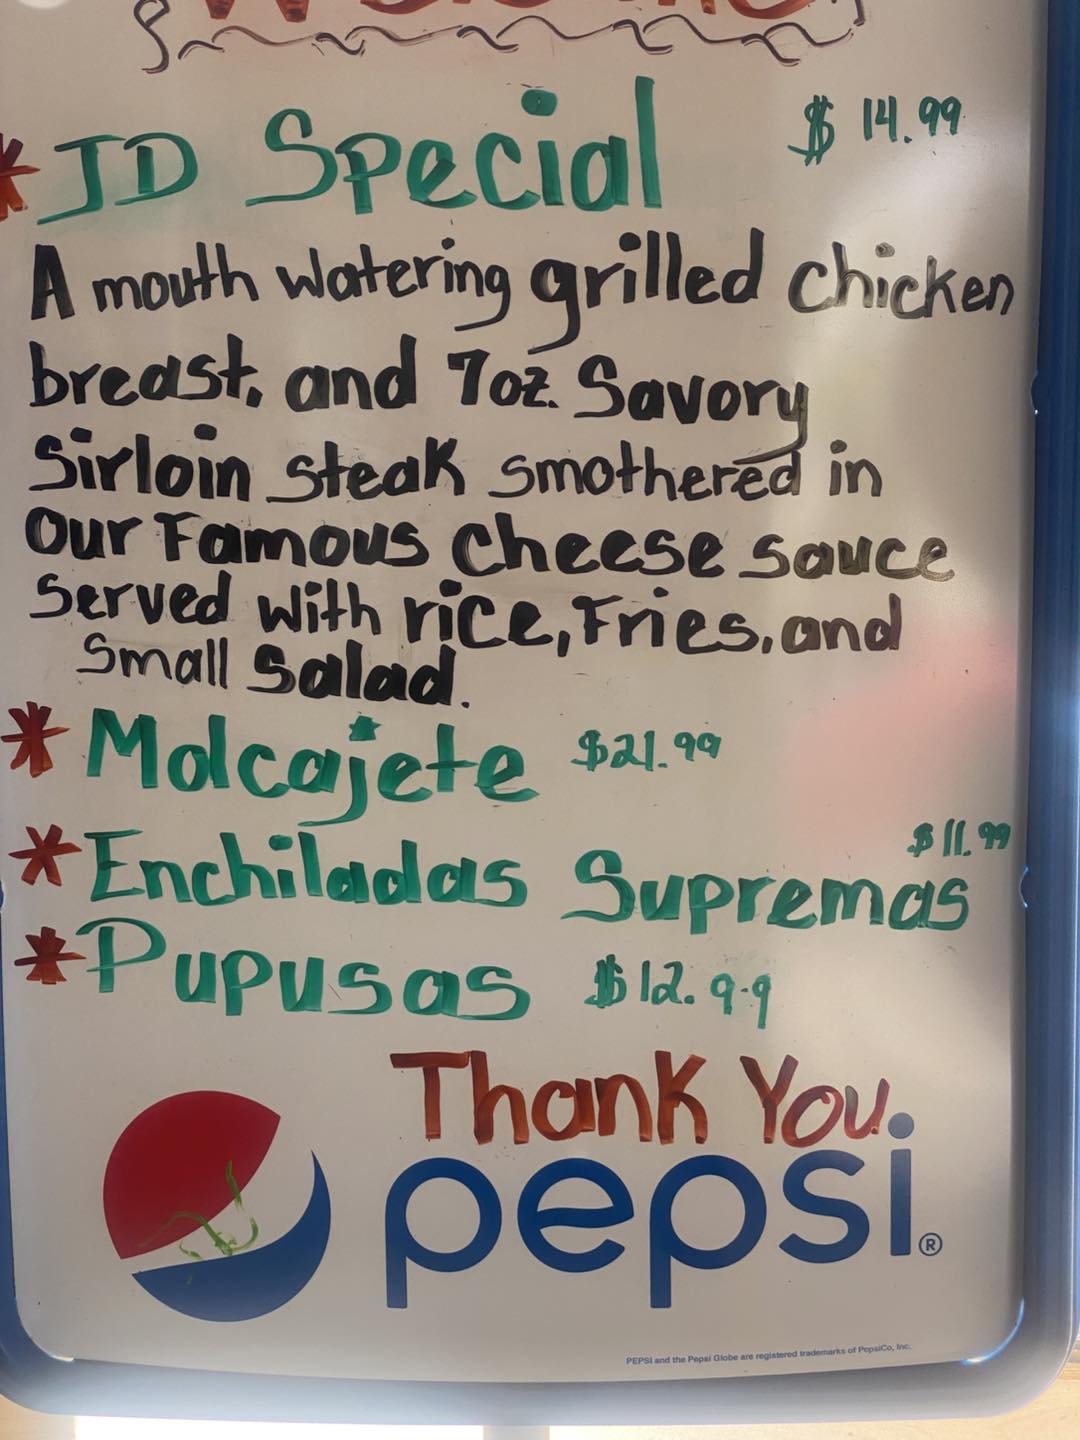 Welcome
* JD Special $14.99
A mouth watering grilled chicken
breast, and 7oz. Savory
Sirloin steak smothered in
our Famous cheese sauce
Served with rice, Fries, and
Small Salad.
* Molcajete $21.99
* Enchiladas Supremas $11.99
* Pupusas $12.99
Thank You
pepsi®
PEPSI and the Pepsi Globe are registered trademarks of PepsiCo, Inc.